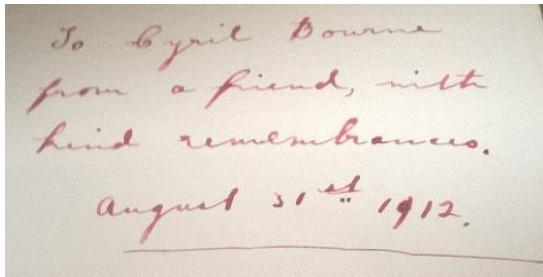 To Cyril Bourne
from a friend, with
kind remembrances.
August 31st 1912.